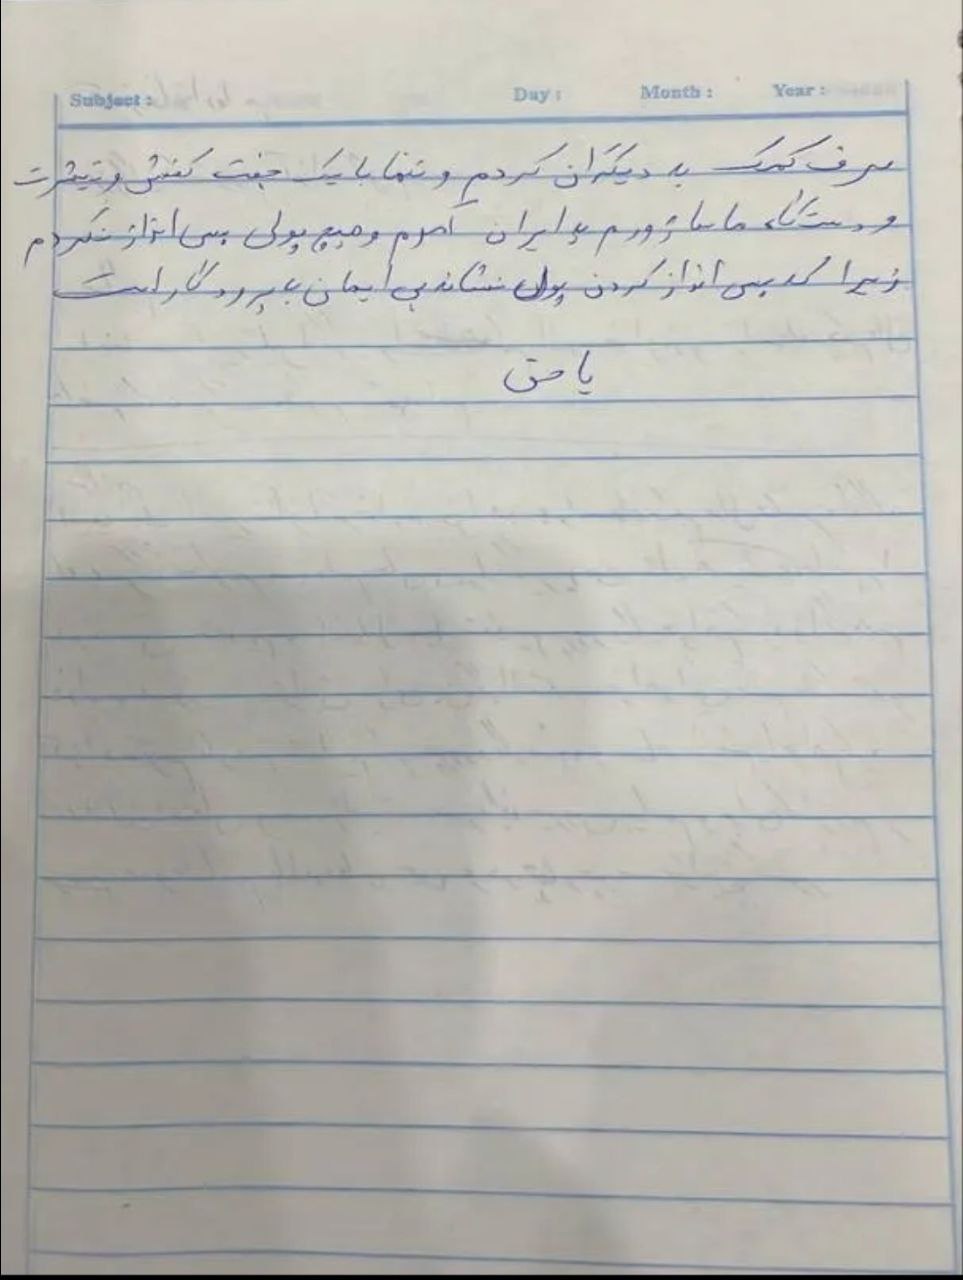 Subject : Day : Month : Year :
صرف کمک به دیگران کردم و تنها با یک جفت کفش و تیشرت
و دستگاه ماساژورم به ایران آمدم و هیچ پولی پس انداز نکردم
زیرا که پس انداز کردن پول نشانه بی ایمان با پروردگار است
یا حق